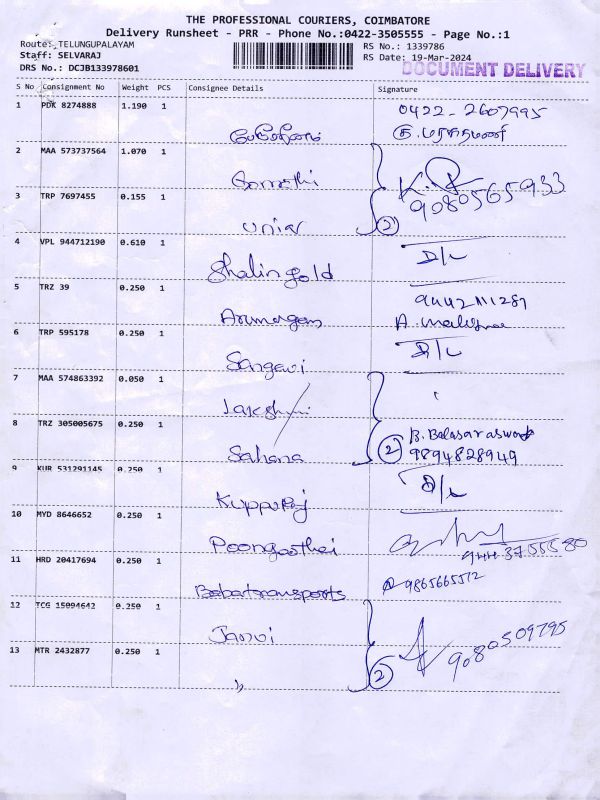 THE PROFESSIONAL COURIERS, COIMBATORE
Delivery Runsheet - PRR - Phone No.:0422-3505555 - Page No.:1
Route: TELUNGUPALAYAM
Staff: SELVARAJ
DRS No: DCJB133978601
RS No.: 1339786
RS Date: 19-Mar-2024
DOCUMENT DELIVERY
S No Consignment No Weight PCS Consignee Details Signature
1 PDK 8274888 1.190 1 0422-2607995
2 MAA 573737564 1.070 1 Gomathi
3 TRP 7697455 0.155 1 (2) 9080565933
4 VPL 944712190 0.610 1 Shalingold D/L
5 TRZ 39 0.250 1 Arumugam
6 TRP 595178 0.250 1 Sangavi D/L
7 MAA 574863392 0.050 1 Lakshmi
8 TRZ 305005675 0.250 1 Sahana (2) B. Balasaraswa 9894828949
9 KUR 531291145 0.250 1 Kuppuraj D/L
10 MYD 8646652 0.250 1 Poongothai
11 HRD 20417694 0.250 1 Babatransports 9865665572
12 TCG 15094642 0.250 1 Janvi
13 MTR 2432877 0.250 1 " (2) 9080509795